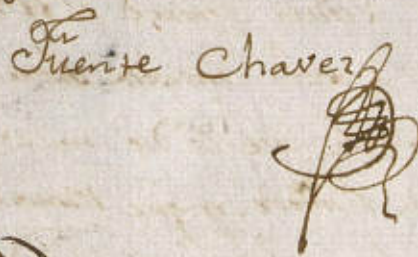 Fuente Chavez